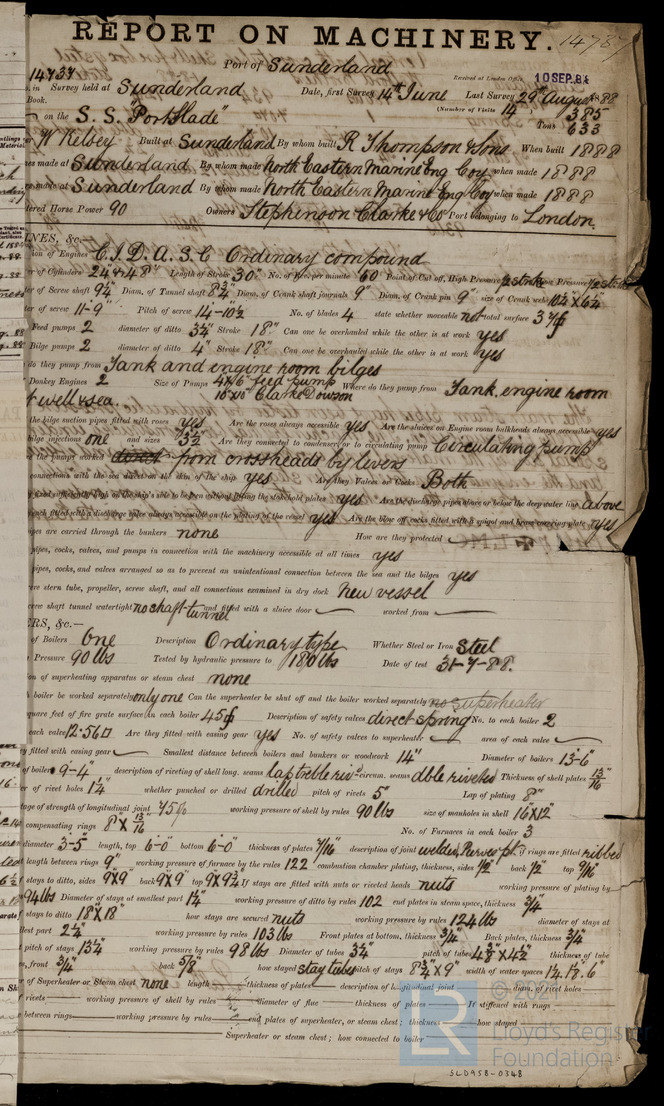 REPORT ON MACHINERY. 14737
Port of Sunderland
14737 Received at London Office 10 SEP. 88
in Survey held at Sunderland Date, first Survey 14th June Last Survey 29th August 1888
Book. (Number of Visits 14
on the S. S. "Portslade" 385
Tons 633
W Kelsey Built at Sunderland By whom built R Thompson & Sons When built 1888
made at Sunderland By whom made North Eastern Marine Eng Coy when made 1888
made at Sunderland By whom made North Eastern Marine Eng Coy when made 1888
Horse Power 90 Owners Stephinson Clarke & Co Port belonging to London.
INES, &c.—
of Engines C. I. D. A. S. C Ordinary compound
of Cylinders 24 & 48" Length of Stroke 30" No. of Rev. per minute 60 Point of Cut off, High Pressure Pressure
of Screw shaft 9¼" Diam. of Tunnel shaft 8¾" Diam. of Crank shaft journals 9" Diam. of Crank pin 9" size of Crank web 10¼ x 6½
of screw 11-9" Pitch of screw 14-10½ No. of blades 4 state whether moveable not total surface
Feed pumps 2 diameter of ditto 3¼" Stroke 18" Can one be overhauled while the other is at work yes
Bilge pumps 2 diameter of ditto 4" Stroke 18" Can one be overhauled while the other is at work yes
do they pump from Tank and engine room bilges
Donkey Engines 2 Size of Pumps 4x6" feed pump Where do they pump from Tank, engine room
well & sea. 10 x 10" Clarke Dowson
the bilge suction pipes fitted with roses yes Are the roses always accessible yes Are the sluices on Engine room bulkheads always accessible yes
bilge injections one and sizes 3½" Are they connected to condenser, or to circulating pump Circulating pump
the pumps worked direct from crossheads by levers
connections with the sea direct on the skin of the ship yes Are they Valves or Cocks Both
yes Are the discharge pipes above or below the deep water line above
each fitted with a discharge valve always accessible on the plating of the vessel yes Are the blow off cocks fitted with a spigot and brass covering plate yes
pipes are carried through the bunkers none How are they protected
pipes, cocks, valves, and pumps in connection with the machinery accessible at all times yes
pipes, cocks, and valves arranged so as to prevent an unintentional connection between the sea and the bilges yes
stern tube, propeller, screw shaft, and all connections examined in dry dock New vessel
screw shaft tunnel watertight no shaft tunnel and fitted with a sluice door worked from
ERS, &c.—
of Boilers One Description Ordinary type Whether Steel or Iron Steel
Pressure 90 lbs Tested by hydraulic pressure to 180 lbs Date of test 31-7-88.
of superheating apparatus or steam chest none
boiler be worked separately only one Can the superheater be shut off and the boiler worked separately no superheater
square feet of fire grate surface in each boiler 45 Description of safety valves direct spring No. to each boiler 2
each valve 12.56 Are they fitted with easing gear yes No. of safety valves to superheater area of each valve
fitted with easing gear Smallest distance between boilers and bunkers or woodwork 14" Diameter of boilers 13-6"
of boilers 9-4" description of riveting of shell long. seams lap treble riv. circum. seams dble riveted Thickness of shell plates 13/16
of rivet holes 1¼ whether punched or drilled drilled pitch of rivets 5" Lap of plating 8"
of strength of longitudinal joint 75% working pressure of shell by rules 90 lbs size of manholes in shell 16x12"
compensating rings 8" x 13/16 No. of Furnaces in each boiler 3
diameter 3-5" length, top 6-0" bottom 6-0" thickness of plates 7/16" description of joint welded, Purves pt. if rings are fitted ribbed
length between rings 9" working pressure of furnace by the rules 122 combustion chamber plating, thickness, sides ½" back ½" top 9/16"
stays to ditto, sides 9x9" back 9x9" top 9x9¼ If stays are fitted with nuts or riveted heads nuts working pressure of plating by
94 lbs Diameter of stays at smallest part 1¼" working pressure of ditto by rules 102 end plates in steam space, thickness ¾"
stays to ditto 18"x18" how stays are secured nuts working pressure by rules 124 lbs diameter of stays at
part 2¼" working pressure by rules 103 lbs Front plates at bottom, thickness ¾" Back plates, thickness ¾"
pitch of stays 13¼" working pressure by rules 98 lbs Diameter of tubes 3¼" pitch of tubes thickness of tube
front ¾" back 5/8" how stayed stay tubes pitch of stays 8¾ x 9" width of water spaces
of Superheater or Steam chest none length thickness of plates description of longitudinal joint diam. of rivet holes
rivets working pressure of shell by rules diameter of flue thickness of plates If stiffened with rings
between rings working pressure by rules end plates of superheater, or steam chest; thickness how stayed
Superheater or steam chest; how connected to boiler
Lloyd's Register
Foundation
SLD958-0348